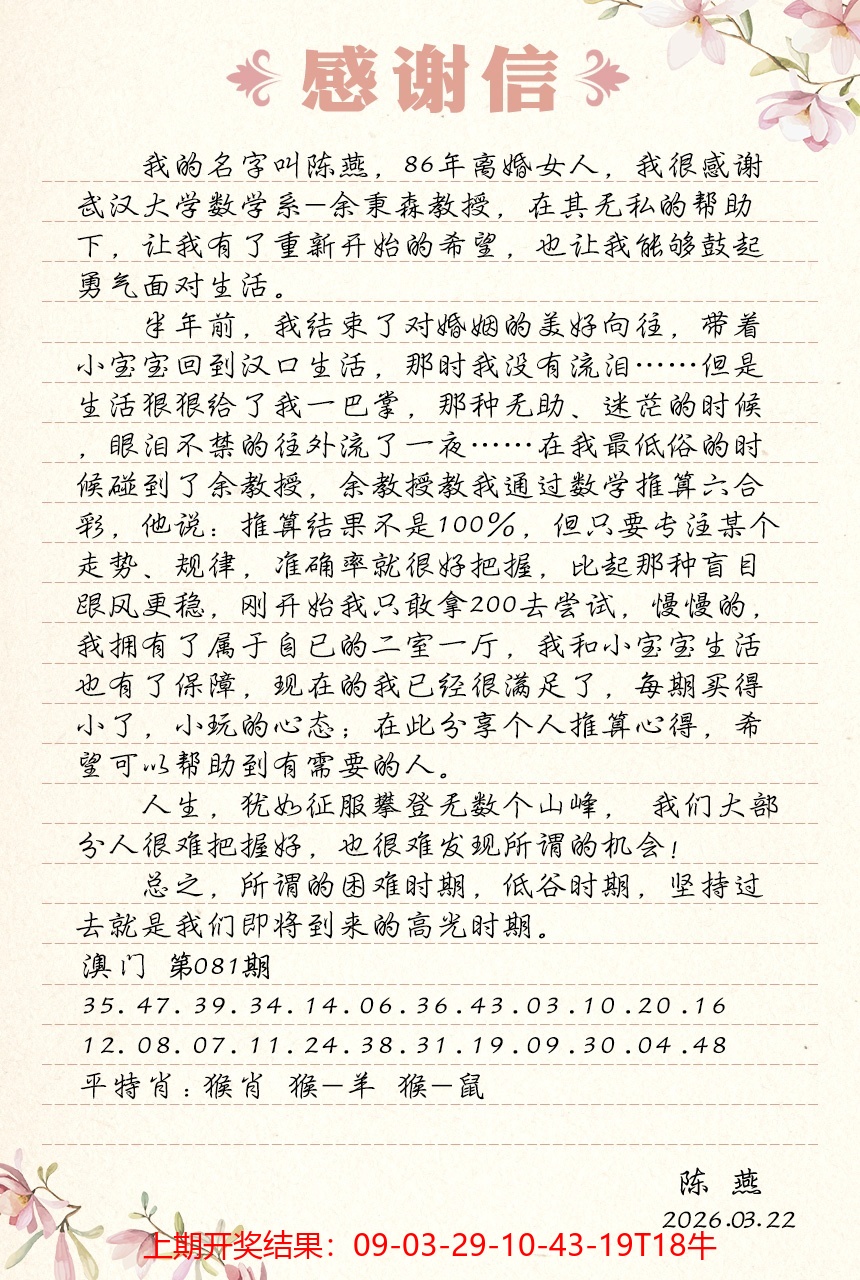 感谢信
我的名字叫陈燕，86年离婚女人，我很感谢
武汉大学数学系—余秉森教授，在其无私的帮助
下，让我有了重新开始的希望，也让我能够鼓起
勇气面对生活。
半年前，我结束了对婚姻的美好向往，带着
小宝宝回到汉口生活，那时我没有流泪……但是
生活狠狠给了我一巴掌，那种无助、迷茫的时候
，眼泪不禁的往外流了一夜……在我最低俗的时
候碰到了余教授，余教授教我通过数学推算六合
彩，他说：推算结果不是100%，但只要专注某个
走势、规律，准确率就很好把握，比起那种盲目
跟风更稳，刚开始我只敢拿200去尝试，慢慢的，
我拥有了属于自已的二室一厅，我和小宝宝生活
也有了保障，现在的我已经很满足了，每期买得
小了，小玩的心态；在此分享个人推算心得，希
望可以帮助到有需要的人。
人生，犹如征服攀登无数个山峰， 我们大部
分人很难把握好，也很难发现所谓的机会！
总之，所谓的困难时期，低谷时期，坚持过
去就是我们即将到来的高光时期。
澳门 第081期
35.47.39.34.14.06.36.43.03.10.20.16
12.08.07.11.24.38.31.19.09.30.04.48
平特肖：猴肖 猴—羊 猴—鼠
陈 燕
2026.03.22
上期开奖结果：09-03-29-10-43-19T18牛